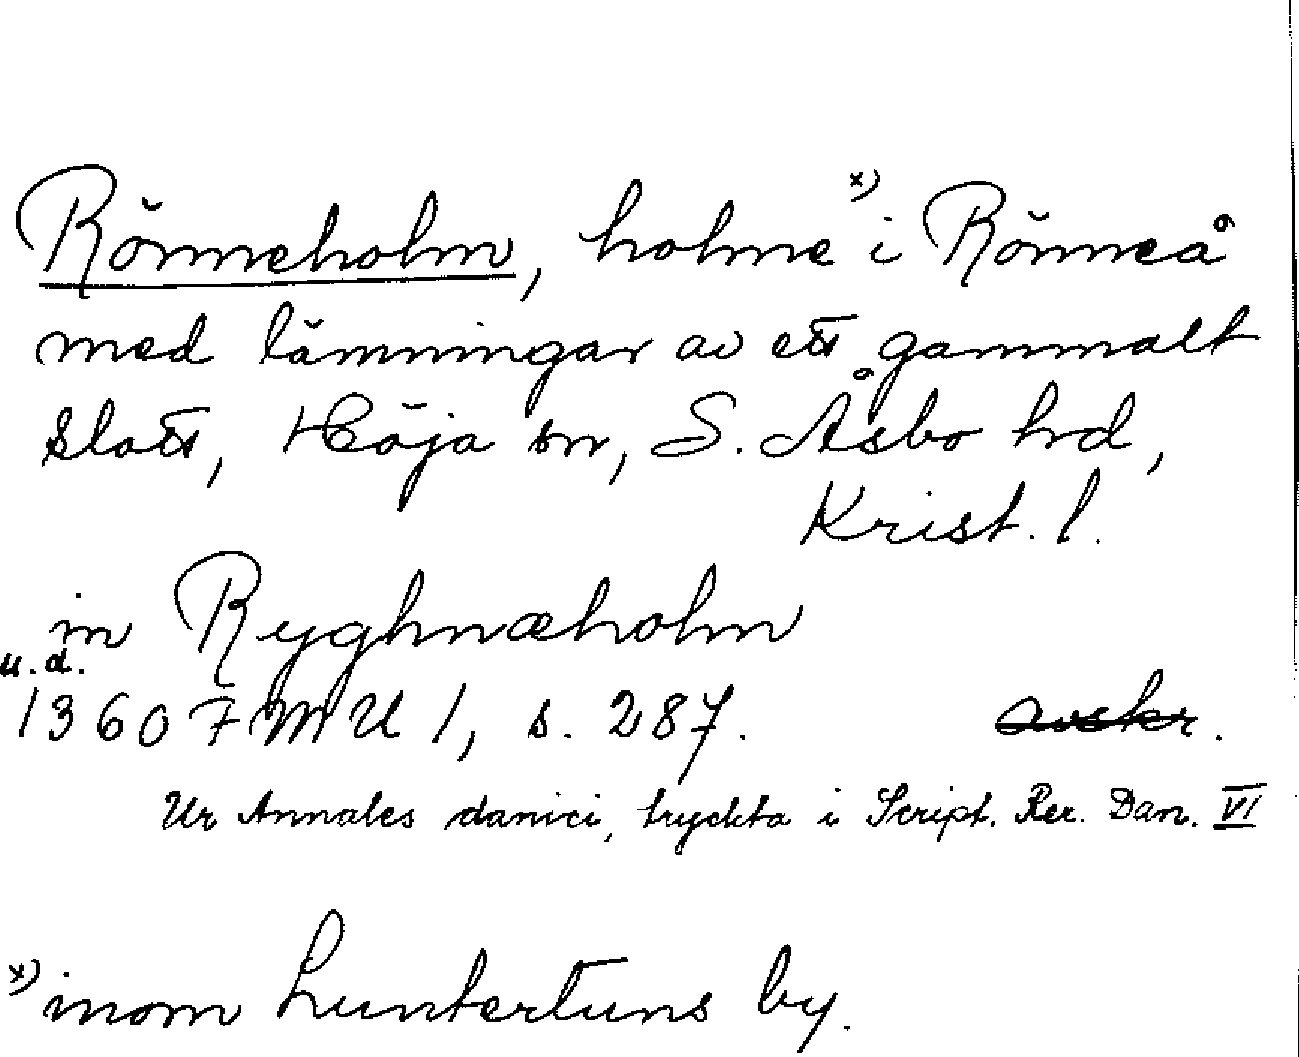 Rönneholm, holme x) i Rönneå
med lämningar av ett gammalt
slott, Höja sn, S. Åsbo hrd,
Krist. l.
in Ryghnæholm
u.d.
1360 FMU 1, s. 287. avskr.
Ur Annales danici, tryckta i Script. Rer. Dan. VI
x) inom Luntertuns by.